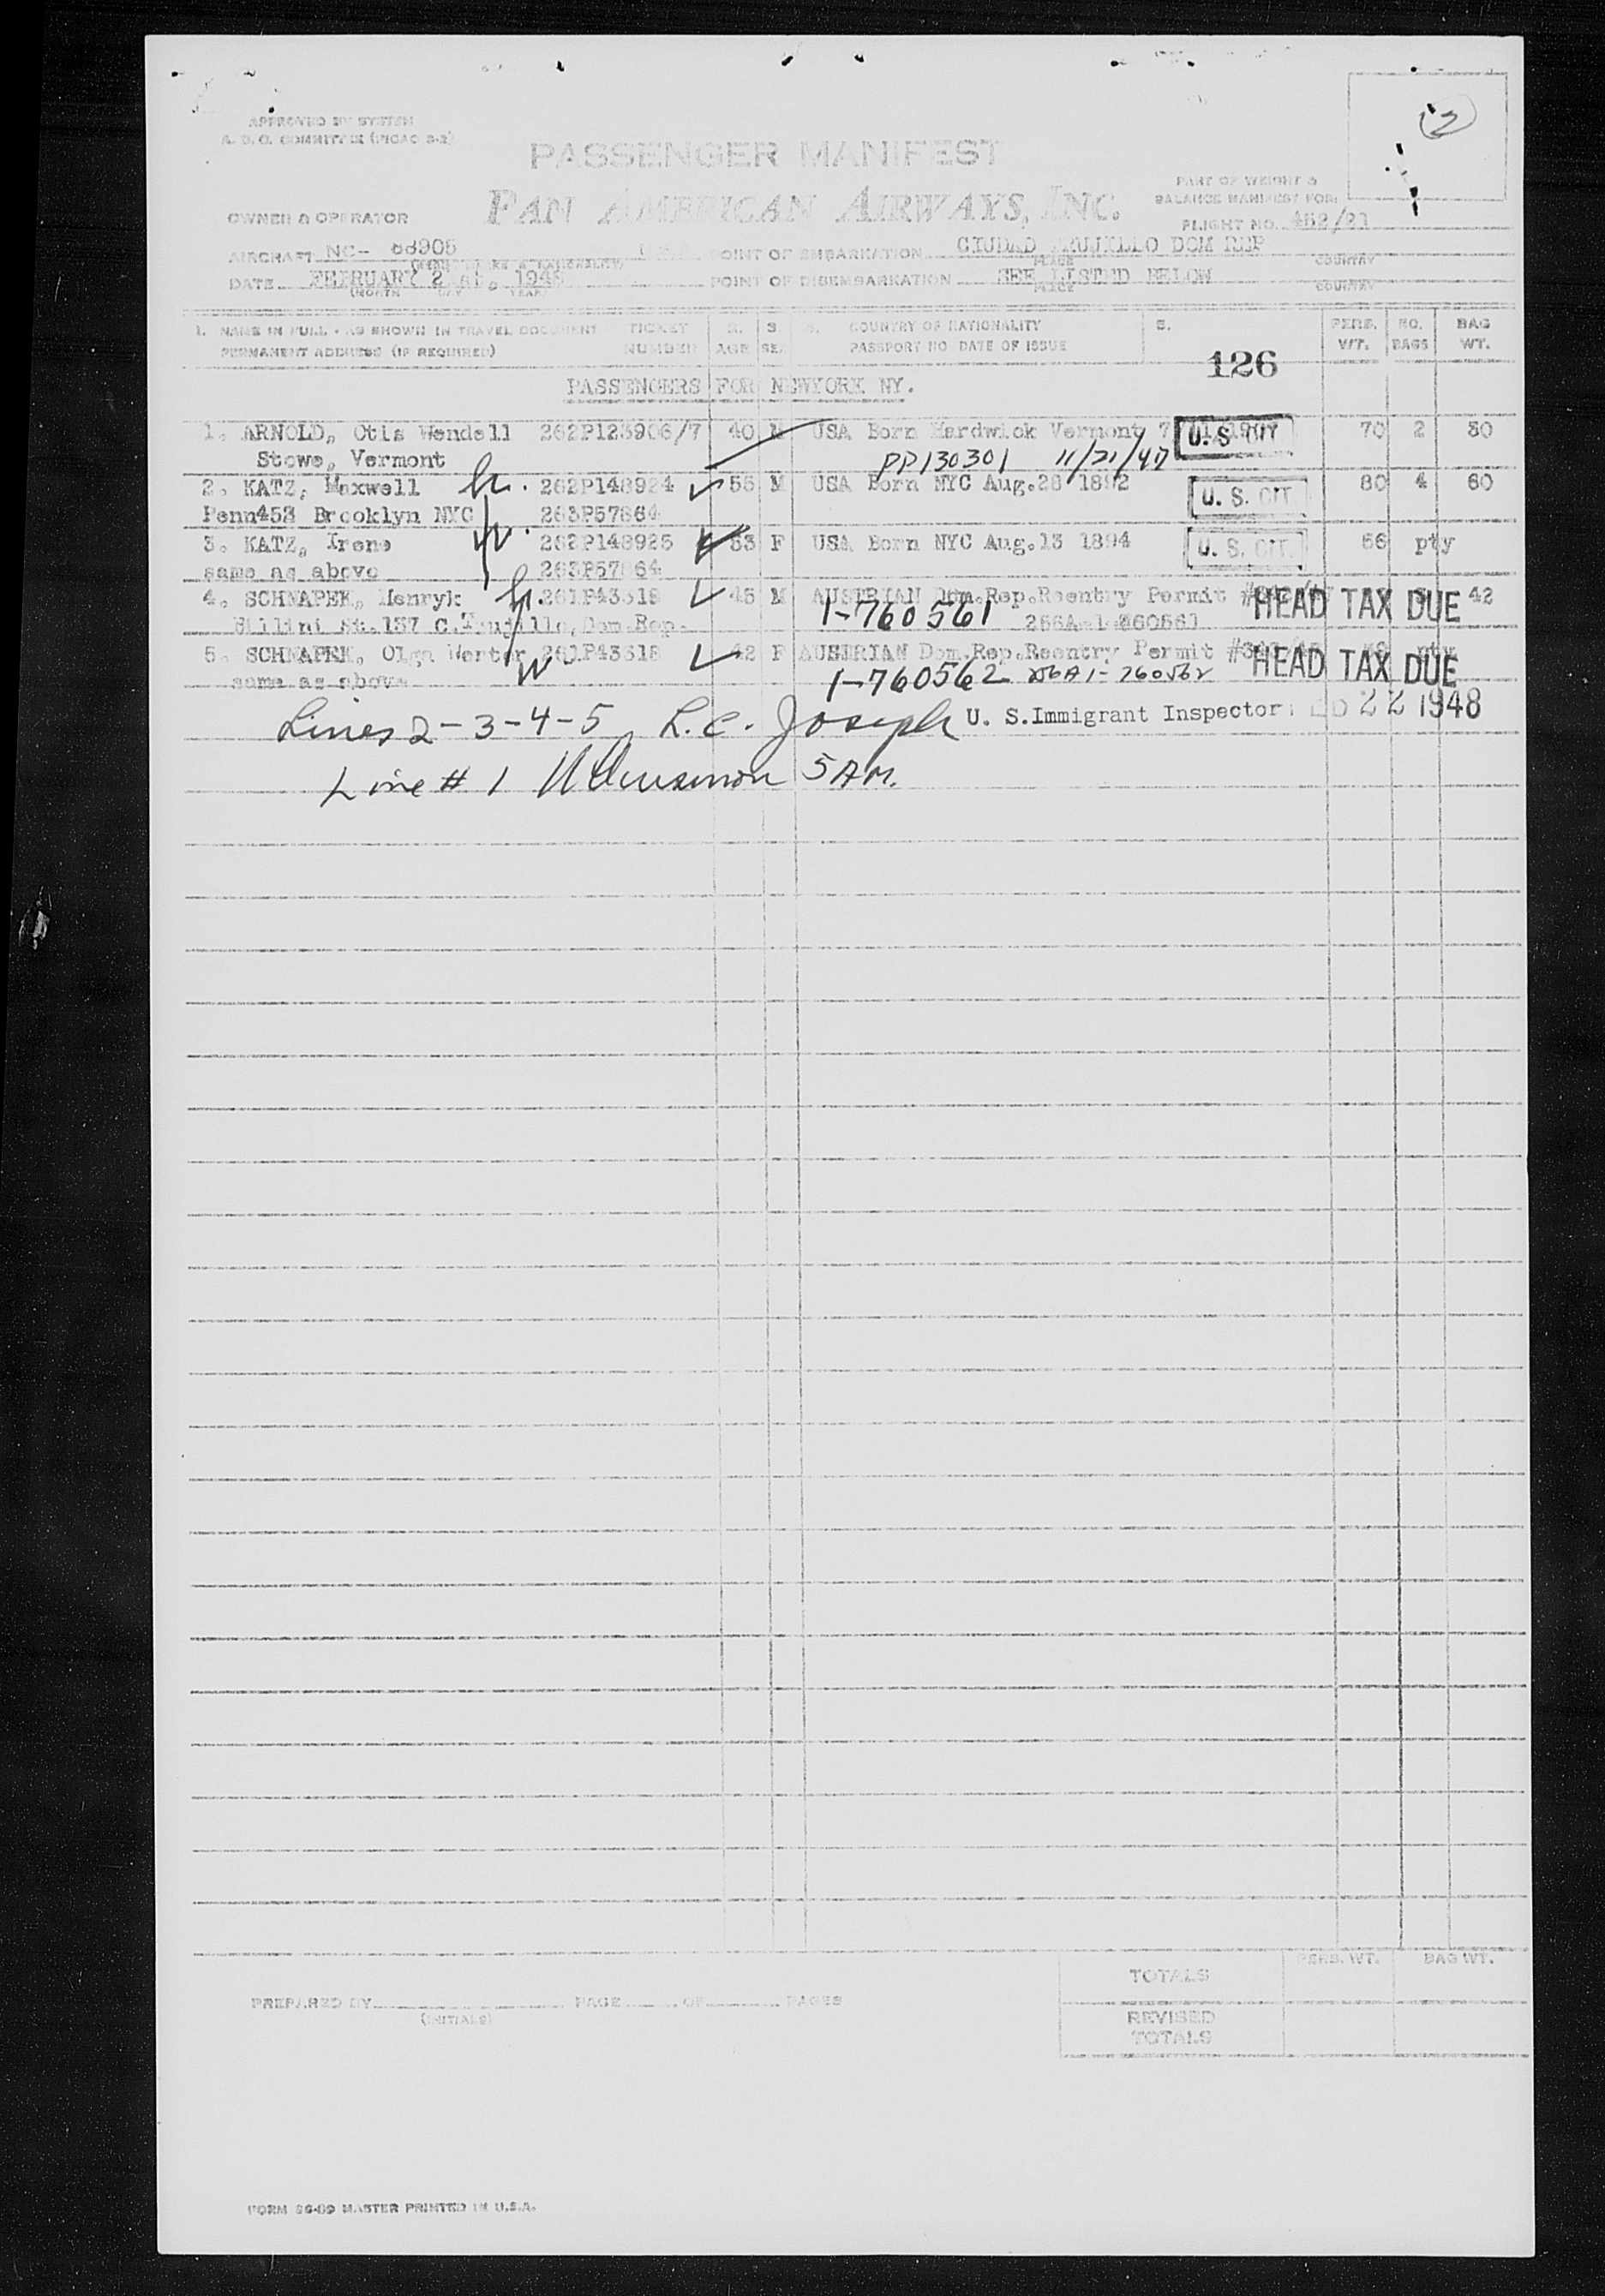 (2)
APPROVED BY SYSTEM
A. D. O. COMMITTEE (PICAO 3-2)
PASSENGER MANIFEST
PAN AMERICAN AIRWAYS, INC.
PART OF WEIGHT &
BALANCE MANIFEST FOR:
OWNER & OPERATOR
FLIGHT NO. 452/21
AIRCRAFT NC- 88905
POINT OF EMBARKATION CIUDAD TRUJILLO DOM REP
PLACE COUNTRY
DATE FEBRUARY 2 st, 1948
(MONTH DAY YEAR)
POINT OF DISEMBARKATION SEE LISTED BELOW
PLACE COUNTRY
1. NAME IN FULL - AS SHOWN IN TRAVEL DOCUMENT TICKET COUNTRY OF NATIONALITY PERS. NO. BAG
PERMANENT ADDRESS (IF REQUIRED) NUMBER AGE SEX PASSPORT NO DATE OF ISSUE WT. BAGS WT.
126
PASSENGERS FOR NEWYORK NY.
1. ARNOLD, Otis Wendell 262P123906/7 40 M USA Born Hardwick Vermont 7 U. S. CIT 70 2 30
Stowe, Vermont PP130301 11/21/47
2. KATZ, Maxwell h. 262P148924 55 M USA Born NYC Aug.28 1892 U. S. CIT. 80 4 60
Penn453 Brooklyn NYC 263P57864
3. KATZ, Irene w. 262P148925 53 F USA Born NYC Aug.13 1894 U. S. CIT. 56 pty
same as above 263P57864
4. SCHNAPEK, Henryk h. 261P43318 45 M AUSTRIAN Dom.Rep.Reentry Permit HEAD TAX DUE 42
Billini St.137 C.Trujillo, Dom.Rep. 1-760561 256A-1-760561
5. SCHNAPEK, Olga 261P43318 42 F AUSTRIAN Dom.Rep.Reentry Permit HEAD TAX DUE
same as above w 1-760562 256A1-760562
Lines 2-3-4-5 L.C. Joseph U. S.Immigrant Inspector 22 1948
Line # 1 5 AM.
TOTALS PERS. WT. BAG WT.
PREPARED BY PAGE OF PAGES
(INITIALS)
REVISED
TOTALS
FORM 26-89 MASTER PRINTED IN U.S.A.